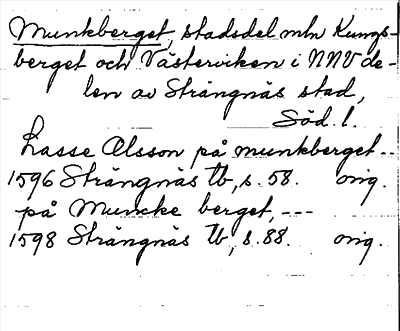 Munkberget, stadsdel mln Kungs-
berget och Västerviken i NNV de-
len av Strängnäs stad,
Söd. l.
Lasse Olsson på munkberget --
1596 Strängnäs tb, s. 58. orig.
på Muncke berget, ---
1598 Strängnäs tb, s. 88. orig.